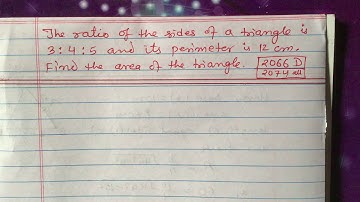 The ratio of the sides of a triangle is
3:4:5 and its perimeter is 12 cm.
Find the area of the triangle. 2066 D
2074